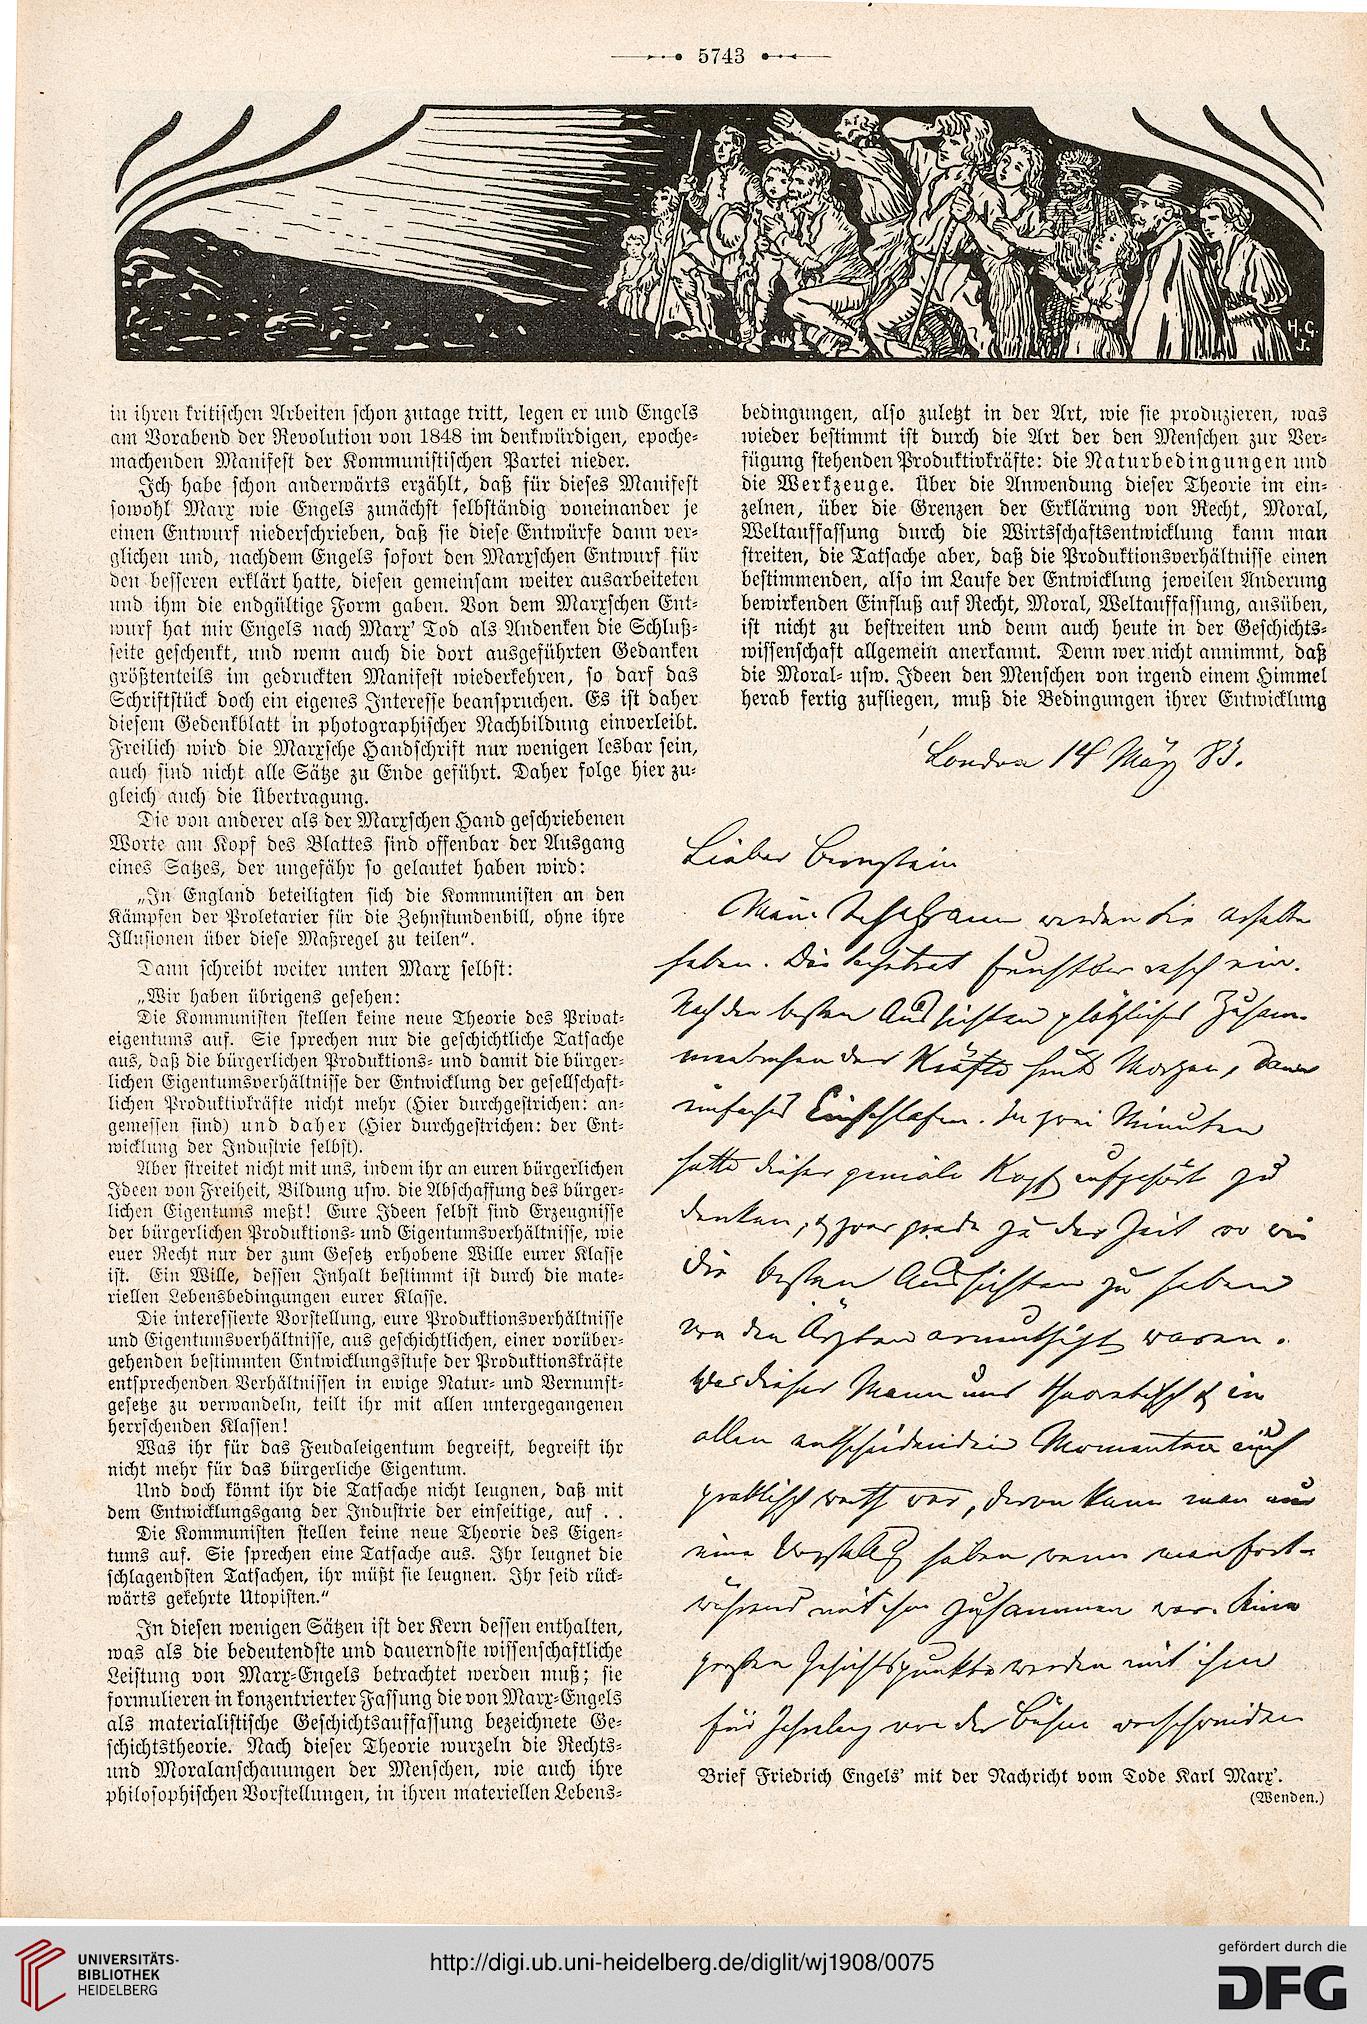 5743
H. G. J.
in ihren kritischen Arbeiten schon zutage tritt, legen er und Engels
am Vorabend der Revolution von 1848 im denkwürdigen, epoche-
machenden Manifest der Kommunistischen Partei nieder.
Ich habe schon anderwärts erzählt, daß für dieses Manifest
sowohl Marx wie Engels zunächst selbständig voneinander je
einen Entwurf niederschrieben, daß sie diese Entwürfe dann ver-
glichen und, nachdem Engels sofort den Marxschen Entwurf für
den besseren erklärt hatte, diesen gemeinsam weiter ausarbeiteten
und ihm die endgültige Form gaben. Von dem Marxschen Ent-
wurf hat mir Engels nach Marx' Tod als Andenken die Schluß-
seite geschenkt, und wenn auch die dort ausgeführten Gedanken
größtenteils im gedruckten Manifest wiederkehren, so darf das
Schriftstück doch ein eigenes Interesse beanspruchen. Es ist daher
diesem Gedenkblatt in photographischer Nachbildung einverleibt.
Freilich wird die Marxsche Handschrift nur wenigen lesbar sein,
auch sind nicht alle Sätze zu Ende geführt. Daher folge hier zu-
gleich auch die Übertragung.
Die von anderer als der Marxschen Hand geschriebenen
Worte am Kopf des Blattes sind offenbar der Ausgang
eines Satzes, der ungefähr so gelautet haben wird:
„In England beteiligten sich die Kommunisten an den
Kämpfen der Proletarier für die Zehnstundenbill, ohne ihre
Illusionen über diese Maßregel zu teilen“.
Dann schreibt weiter unten Marx selbst:
„Wir haben übrigens gesehen:
Die Kommunisten stellen keine neue Theorie des Privat-
eigentums auf. Sie sprechen nur die geschichtliche Tatsache
aus, daß die bürgerlichen Produktions- und damit die bürger-
lichen Eigentumsverhältnisse der Entwicklung der gesellschaft-
lichen Produktivkräfte nicht mehr (Hier durchgestrichen: an-
gemessen sind) und daher (Hier durchgestrichen: der Ent-
wicklung der Industrie selbst).
Aber streitet nicht mit uns, indem ihr an euren bürgerlichen
Ideen von Freiheit, Bildung usw. die Abschaffung des bürger-
lichen Eigentums meßt! Eure Ideen selbst sind Erzeugnisse
der bürgerlichen Produktions- und Eigentumsverhältnisse, wie
euer Recht nur der zum Gesetz erhobene Wille eurer Klasse
ist. Ein Wille, dessen Inhalt bestimmt ist durch die mate-
riellen Lebensbedingungen eurer Klasse.
Die interessierte Vorstellung, eure Produktionsverhältnisse
und Eigentumsverhältnisse, aus geschichtlichen, einer vorüber-
gehenden bestimmten Entwicklungsstufe der Produktionskräfte
entsprechenden Verhältnissen in ewige Natur- und Vernunft-
gesetze zu verwandeln, teilt ihr mit allen untergegangenen
herrschenden Klassen!
Was ihr für das Feudaleigentum begreift, begreift ihr
nicht mehr für das bürgerliche Eigentum.
Und doch könnt ihr die Tatsache nicht leugnen, daß mit
dem Entwicklungsgang der Industrie der einseitige, auf . .
Die Kommunisten stellen keine neue Theorie des Eigen-
tums auf. Sie sprechen eine Tatsache aus. Ihr leugnet die
schlagendsten Tatsachen, ihr müßt sie leugnen. Ihr seid rück-
wärts gekehrte Utopisten.“
In diesen wenigen Sätzen ist der Kern dessen enthalten,
was als die bedeutendste und dauerndste wissenschaftliche
Leistung von Marx-Engels betrachtet werden muß; sie
formulieren in konzentrierter Fassung die von Marx-Engels
als materialistische Geschichtsauffassung bezeichnete Ge-
schichtstheorie. Nach dieser Theorie wurzeln die Rechts-
und Moralanschauungen der Menschen, wie auch ihre
philosophischen Vorstellungen, in ihren materiellen Lebens-
bedingungen, also zuletzt in der Art, wie sie produzieren, was
wieder bestimmt ist durch die Art der den Menschen zur Ver-
fügung stehenden Produktivkräfte: die Naturbedingungen und
die Werkzeuge. Über die Anwendung dieser Theorie im ein-
zelnen, über die Grenzen der Erklärung von Recht, Moral,
Weltauffassung durch die Wirtschaftsentwicklung kann man
streiten, die Tatsache aber, daß die Produktionsverhältnisse einen
bestimmenden, also im Laufe der Entwicklung jeweilen Änderung
bewirkenden Einfluß auf Recht, Moral, Weltauffassung, ausüben,
ist nicht zu bestreiten und denn auch heute in der Geschichts-
wissenschaft allgemein anerkannt. Denn wer nicht annimmt, daß
die Moral- usw. Ideen den Menschen von irgend einem Himmel
herab fertig zufliegen, muß die Bedingungen ihrer Entwicklung
London 14 März 83.
Lieber Bernstein
Mein Telegramm werden Sie erhalten
haben. Die Sache trat furchtbar rasch ein.
Nach den besten Aussichten plötzliches Zusam-
menbrechen der Kräfte heute Morgen, dann
einfaches Einschlafen. In zwei Minuten
hatte dieser geniale Kopf aufgehört zu
denken, & zwar grade zu der Zeit wo wir
die besten Aussichten zu haben
von den Ärzten ermuthigt waren.
Was dieser Mann uns theoretisch & in
allen entscheidenden Momenten auch
praktisch werth war, davon kann man nur
eine Vorstellg haben wenn man fort-
während mit ihm zusammen war. Seine
großen Gesichtspunkte werden mit ihm
für Jahrelang von der Bühne verschwinden
Brief Friedrich Engels' mit der Nachricht vom Tode Karl Marx'.
(Wenden.)
UNIVERSITÄTS-
BIBLIOTHEK
HEIDELBERG
http://digi.ub.uni-heidelberg.de/diglit/wj1908/0075
gefördert durch die
DFG